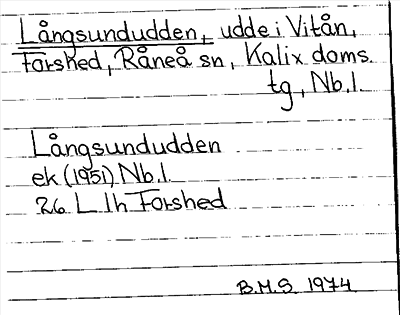 Långsundudden, udde i Vitån,
Forshed, Råneå sn, Kalix doms.
tg, Nb.l.
Långsundudden
ek (1951) Nb.l.
26 L lh Forshed
B.M.S. 1974